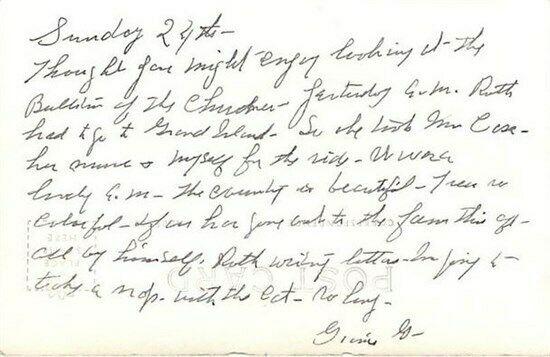 Sunday 24th -
Thought you might enjoy looking at the
Bulletin of the Churches - Yesterday a.m. Ruth
had to go to Grand Island - So she took Mrs Case -
her nurse & myself for the ride - It was a
lovely a.m - The country is beautiful - Trees so
colorful - has gone out to the farm this af
all by himself. Ruth writing letters - Im going to
take a nap - with the cat - So long -
G -
POST CARD
HERE